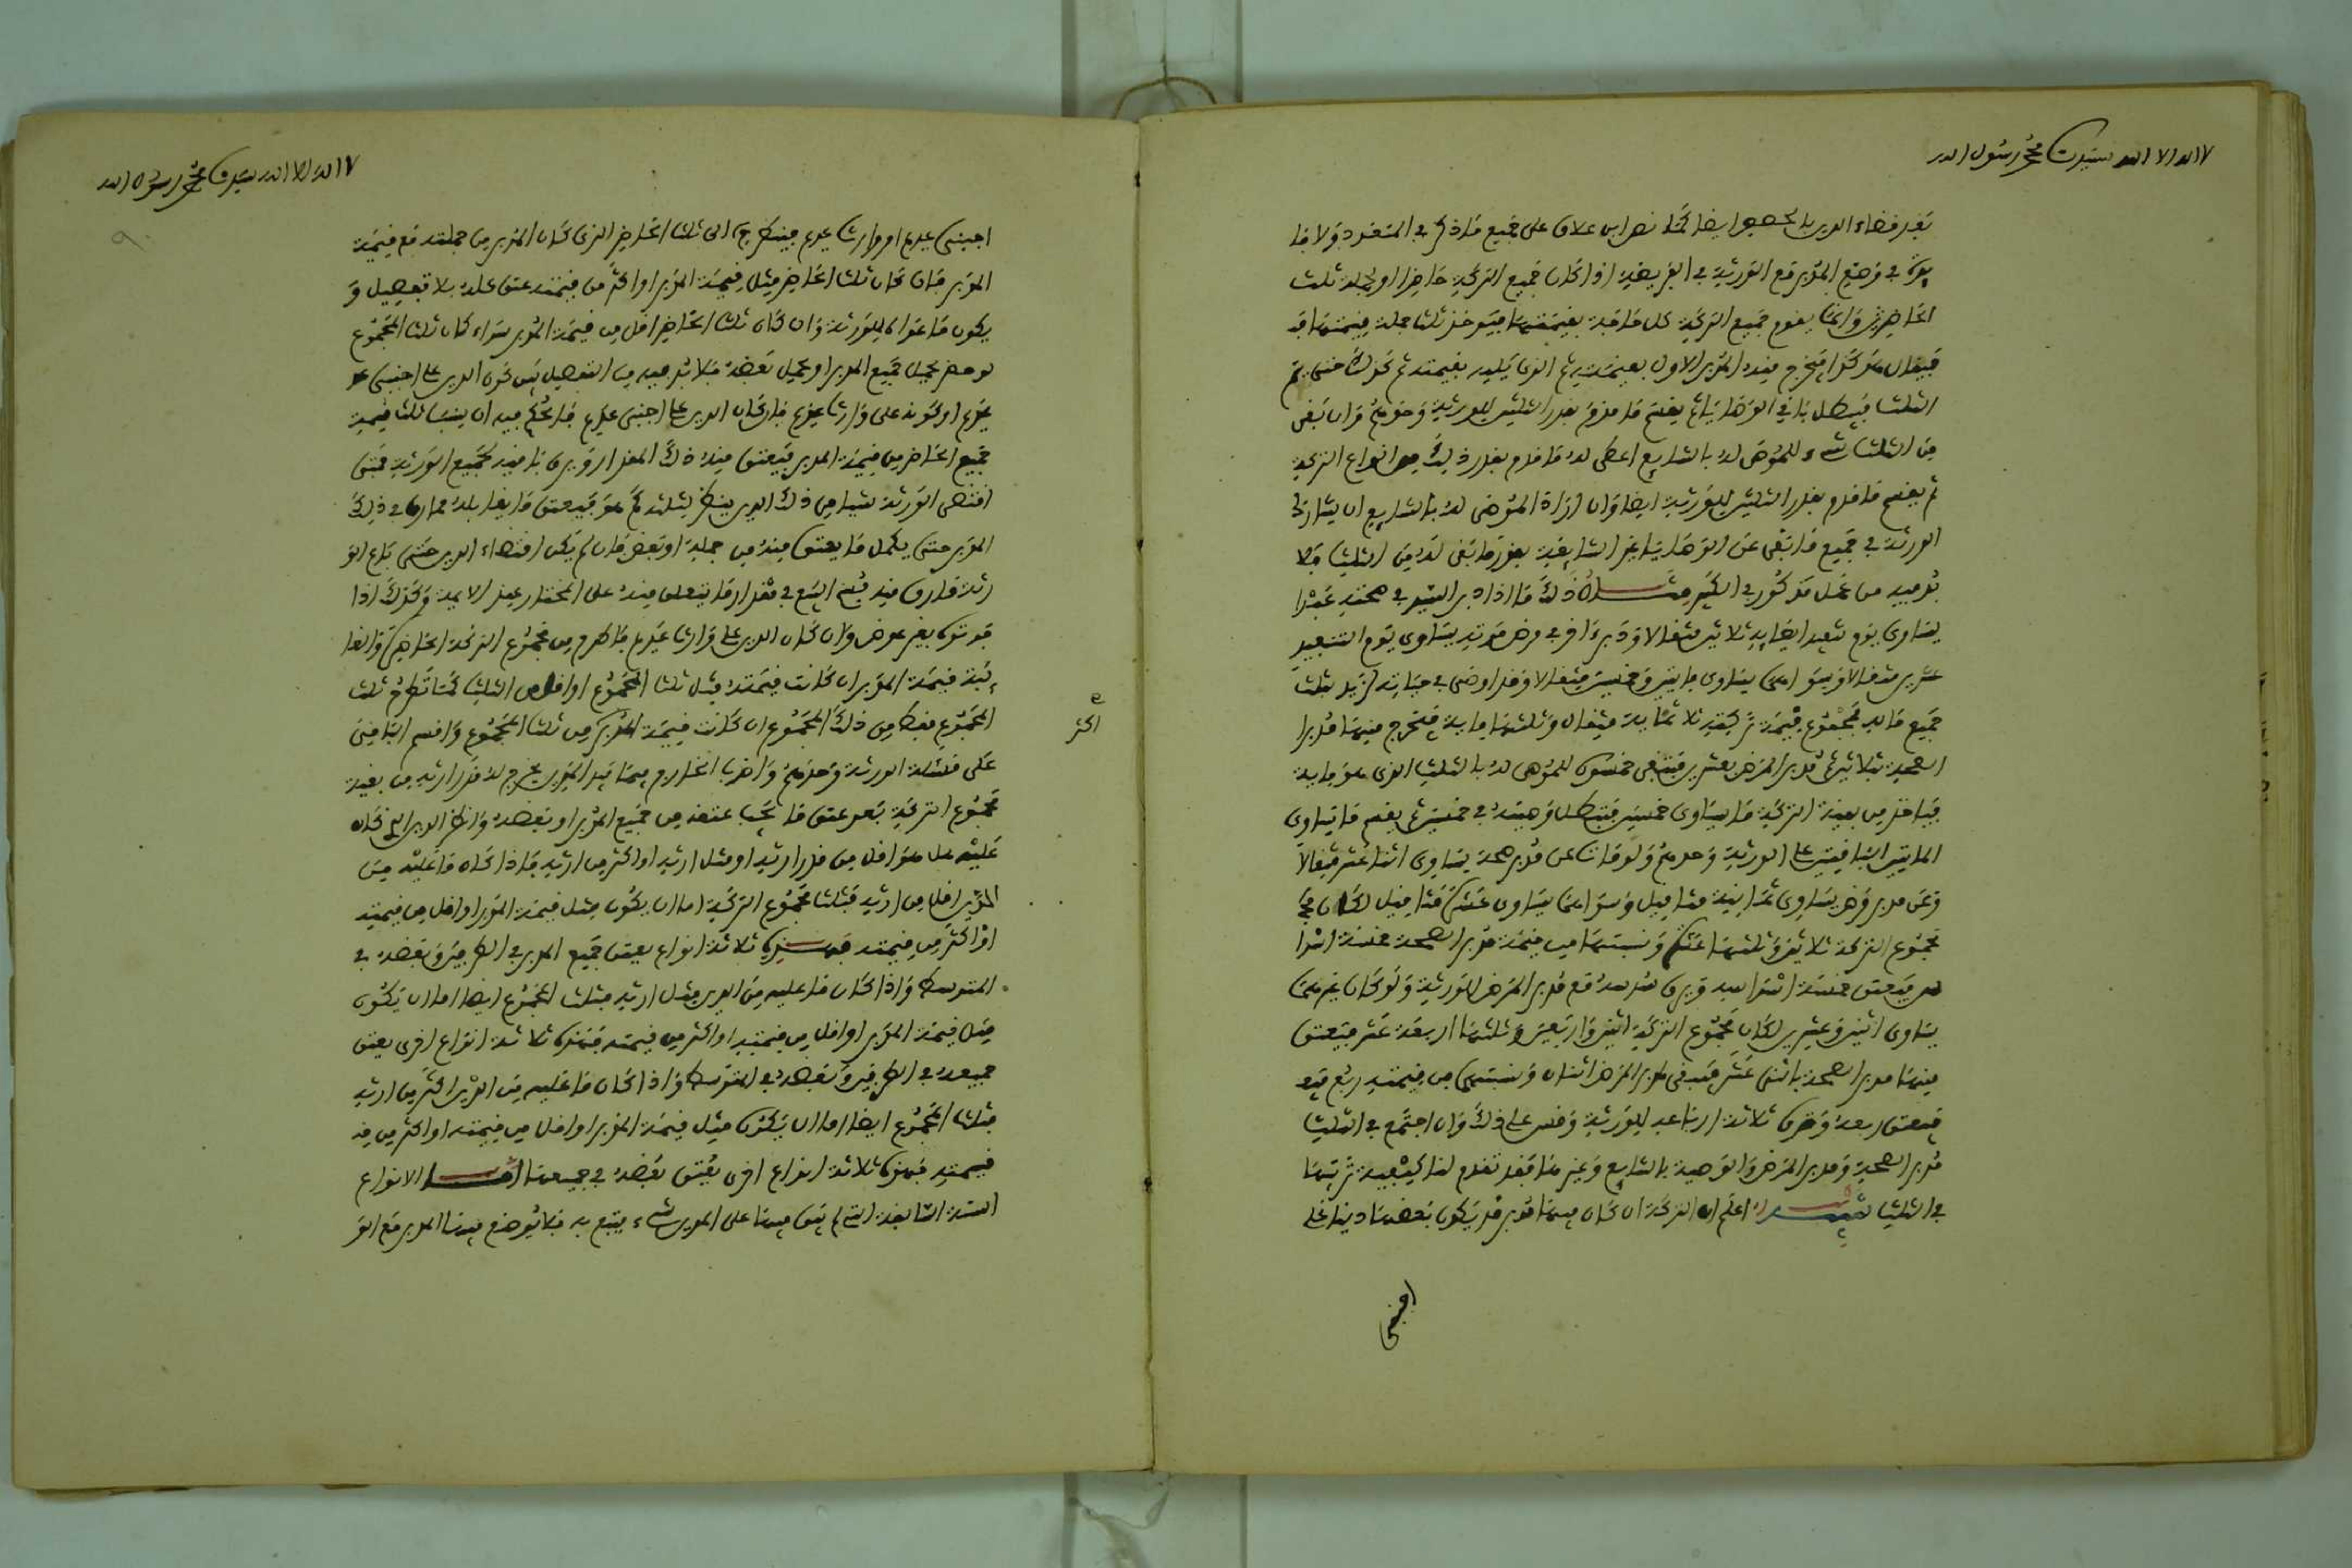 لا اله الا الله سيدنا محمد رسول الله
بعد قضاء الدين بالحصص ايضا كما نص ابن علاق على جميع ما ذكر في المتعدد ولا فا
في وضع المدبر مع الورثة في الفريضة اذا كان جميع التركة حاضرا او لجملة ثلث
الحاضر وانما يقوم جميع التركة كل ما فيه بقيمتها فيؤخذ ثلث جملة قيمتها فيه
فيقال هو كذا فيخرج منه المدبر الاول بقيمته ثم الذي يليه بقيمته ثم كذلك حتى يتم
الثلث فيبطل باقي الوصايا ثم يقسم ما قوم بقدر الثلثين للورثة وحدهم وان بقي
من الثلث شيء للموصى له بالشايع اعطى له ما قوم بقدر ذلك من انواع التركة
ثم يقسم ما قوم بقدر الثلثين للورثة ايضا وان اراد الموصى له بالشايع ان يشارك
الورثة في جميع ما بقي عن الوصايا غير الشايعة بقدر ما بقي له من الثلث فلا
بد فيه من عمل مذكور في الكبير مثال ذلك ما اذا دبر السيد في صحته عبدا
يساوي يوم تنفيذ ايصايه ثلاثين مثقالا ودبر اخر في مرض موته يساوي يوم التنفيذ
عشرين مثقالا وسواهما يساوي مايتين وخمسين مثقالا وقد اوصى في حياته لزيد بثلث
جميع ماله فمجموع قيمة تركته ثلاثماية مثقال وثلثها ماية فيخرج منها مدبرا
الصحة بثلاثين ثم مدبر المرض بعشرين فتبقى خمسون للموصى له بالثلث الذي هو ماية
فياخذ من بقية التركة ما يساوي خمسين فتبطل وصيته في خمسين ثم يقسم ما يساوي
المايتين الباقيتين على الورثة وحدهم ولو مات عن مدبر صحة يساوي اثنا عشر مثقالا
وعن مدبر مرض يساوي ثمانية مثاقيل وسواهما يساوي عشرة مثاقيل لكان
مجموع التركة ثلاثين وثلثها عشرة ونسبتها من قيمة مدبر الصحة خمسة اسدا
سه فيعتق خمسة اسداسه ويرق سدسه مع مدبر المرض للورثة ولو كان غيرهما
يساوي اثنين وعشرين لكان مجموع التركة اثنين واربعين وثلثها اربعة عشر فيعتق
منها مدبر الصحة باثني عشر فيبقى لمدبر المرض اثنان ونسبتهما من قيمته ربع
فيعتق ربعه وترق ثلاثة ارباعه للورثة وقس على ذلك وان اجتمع في الثلث
مدبر الصحة ومدبر المرض والوصية بالشايع وغيرها فقد تقدم لنا كيفية ترتيبها
في الثلث تنبيه اعلم ان التركة ان كان فيها مدبر قد يكون بعضها دينا على
اجنبي
لا اله الا الله سيدنا محمد رسول الله
اجنبي عديم او وارث عديم فينظر الى ثلث الحاضر الذي كان المدبر من جملته مع قيمة
المدبر فان كان ثلث الحاضر مثل قيمة المدبر او اكثر من قيمته عتق كله بلا تفصيل و
يكون ما عداه للورثة وان كان ثلث الحاضر اقل من قيمة المدبر سواء كان ثلث المجموع
لو حضر يحمل جميع المدبر او يحمل بعضه فلا بد فيه من التفصيل بين كون الدين على اجنبي
عديم او كونه على وارث عديم فان كان الدين على اجنبي عديم فالحكم فيه ان ينسب ثلث قيمة
جميع الحاضر من قيمة المدبر فيعتق منه ذلك المقدار ويرق باقيه لجميع الورثة فمتى
اقتضى الورثة شيئا من ذلك الدين ينظر لثلثه كم هو فيعتق ما يقابله مما رق في ذلك
المدبر حتى يكمل ما يعتق منه من جملة او بعض فان لم يكن اقتضاء الدين حتى باع الو
رثة ما رق منه فسخ البيع في مقدار ما يتعلق منه على المختار عند الايمة وكذلك اذا
فوتوه بغير عوض وان كان الدين على وارث عديم فاطرح من مجموع التركة الحاضرة والغا
ئبة قيمة المدبر ان كانت قيمته مثل ثلث المجموع او اقل من الثلث كما تطرح ثلث
المجموع فقط من ذلك المجموع ان كانت قيمة المدبر اكثر من ثلث المجموع واقسم الباقي
على مسئلة الورثة وحدهم واضرب الخارج فيما بيد المدين يخرج له قدر ارثه من بقية
مجموع التركة بعد عتق ما يجب عتقه من جميع المدبر او بعضه وانظر الدين الذي كان
عليه هل هو اقل من قدر ارثه او مثل ارثه او اكثر من ارثه فاذا كان ما عليه من
الدين اقل من ارثه فثلث مجموع التركة اما ان يكون مثل قيمة المدبر او اقل من قيمته
او اكثر من قيمته فهذه ثلاثة انواع يعتق جميع المدبر في الطرفين وبعضه في
المتوسط واذا كان ما عليه من الدين مثل ارثه فثلث المجموع ايضا اما ان يكون
مثل قيمة المدبر او اقل من قيمته او اكثر من قيمته فهذه ثلاثة انواع اخرى يعتق
جميعه في الطرفين وبعضه في المتوسط واذا كان ما عليه من الدين اكثر من ارثه
فثلث المجموع ايضا اما ان يكون مثل قيمة المدبر او اقل من قيمته او اكثر من
قيمته فهذه ثلاثة انواع اخرى يعتق بعضه في جميعها اما الانواع
الستة السابقة التي لم يبق فيها على المدين شيء يتبع به فلا يوضع فيها المدبر مع الو
اكثر